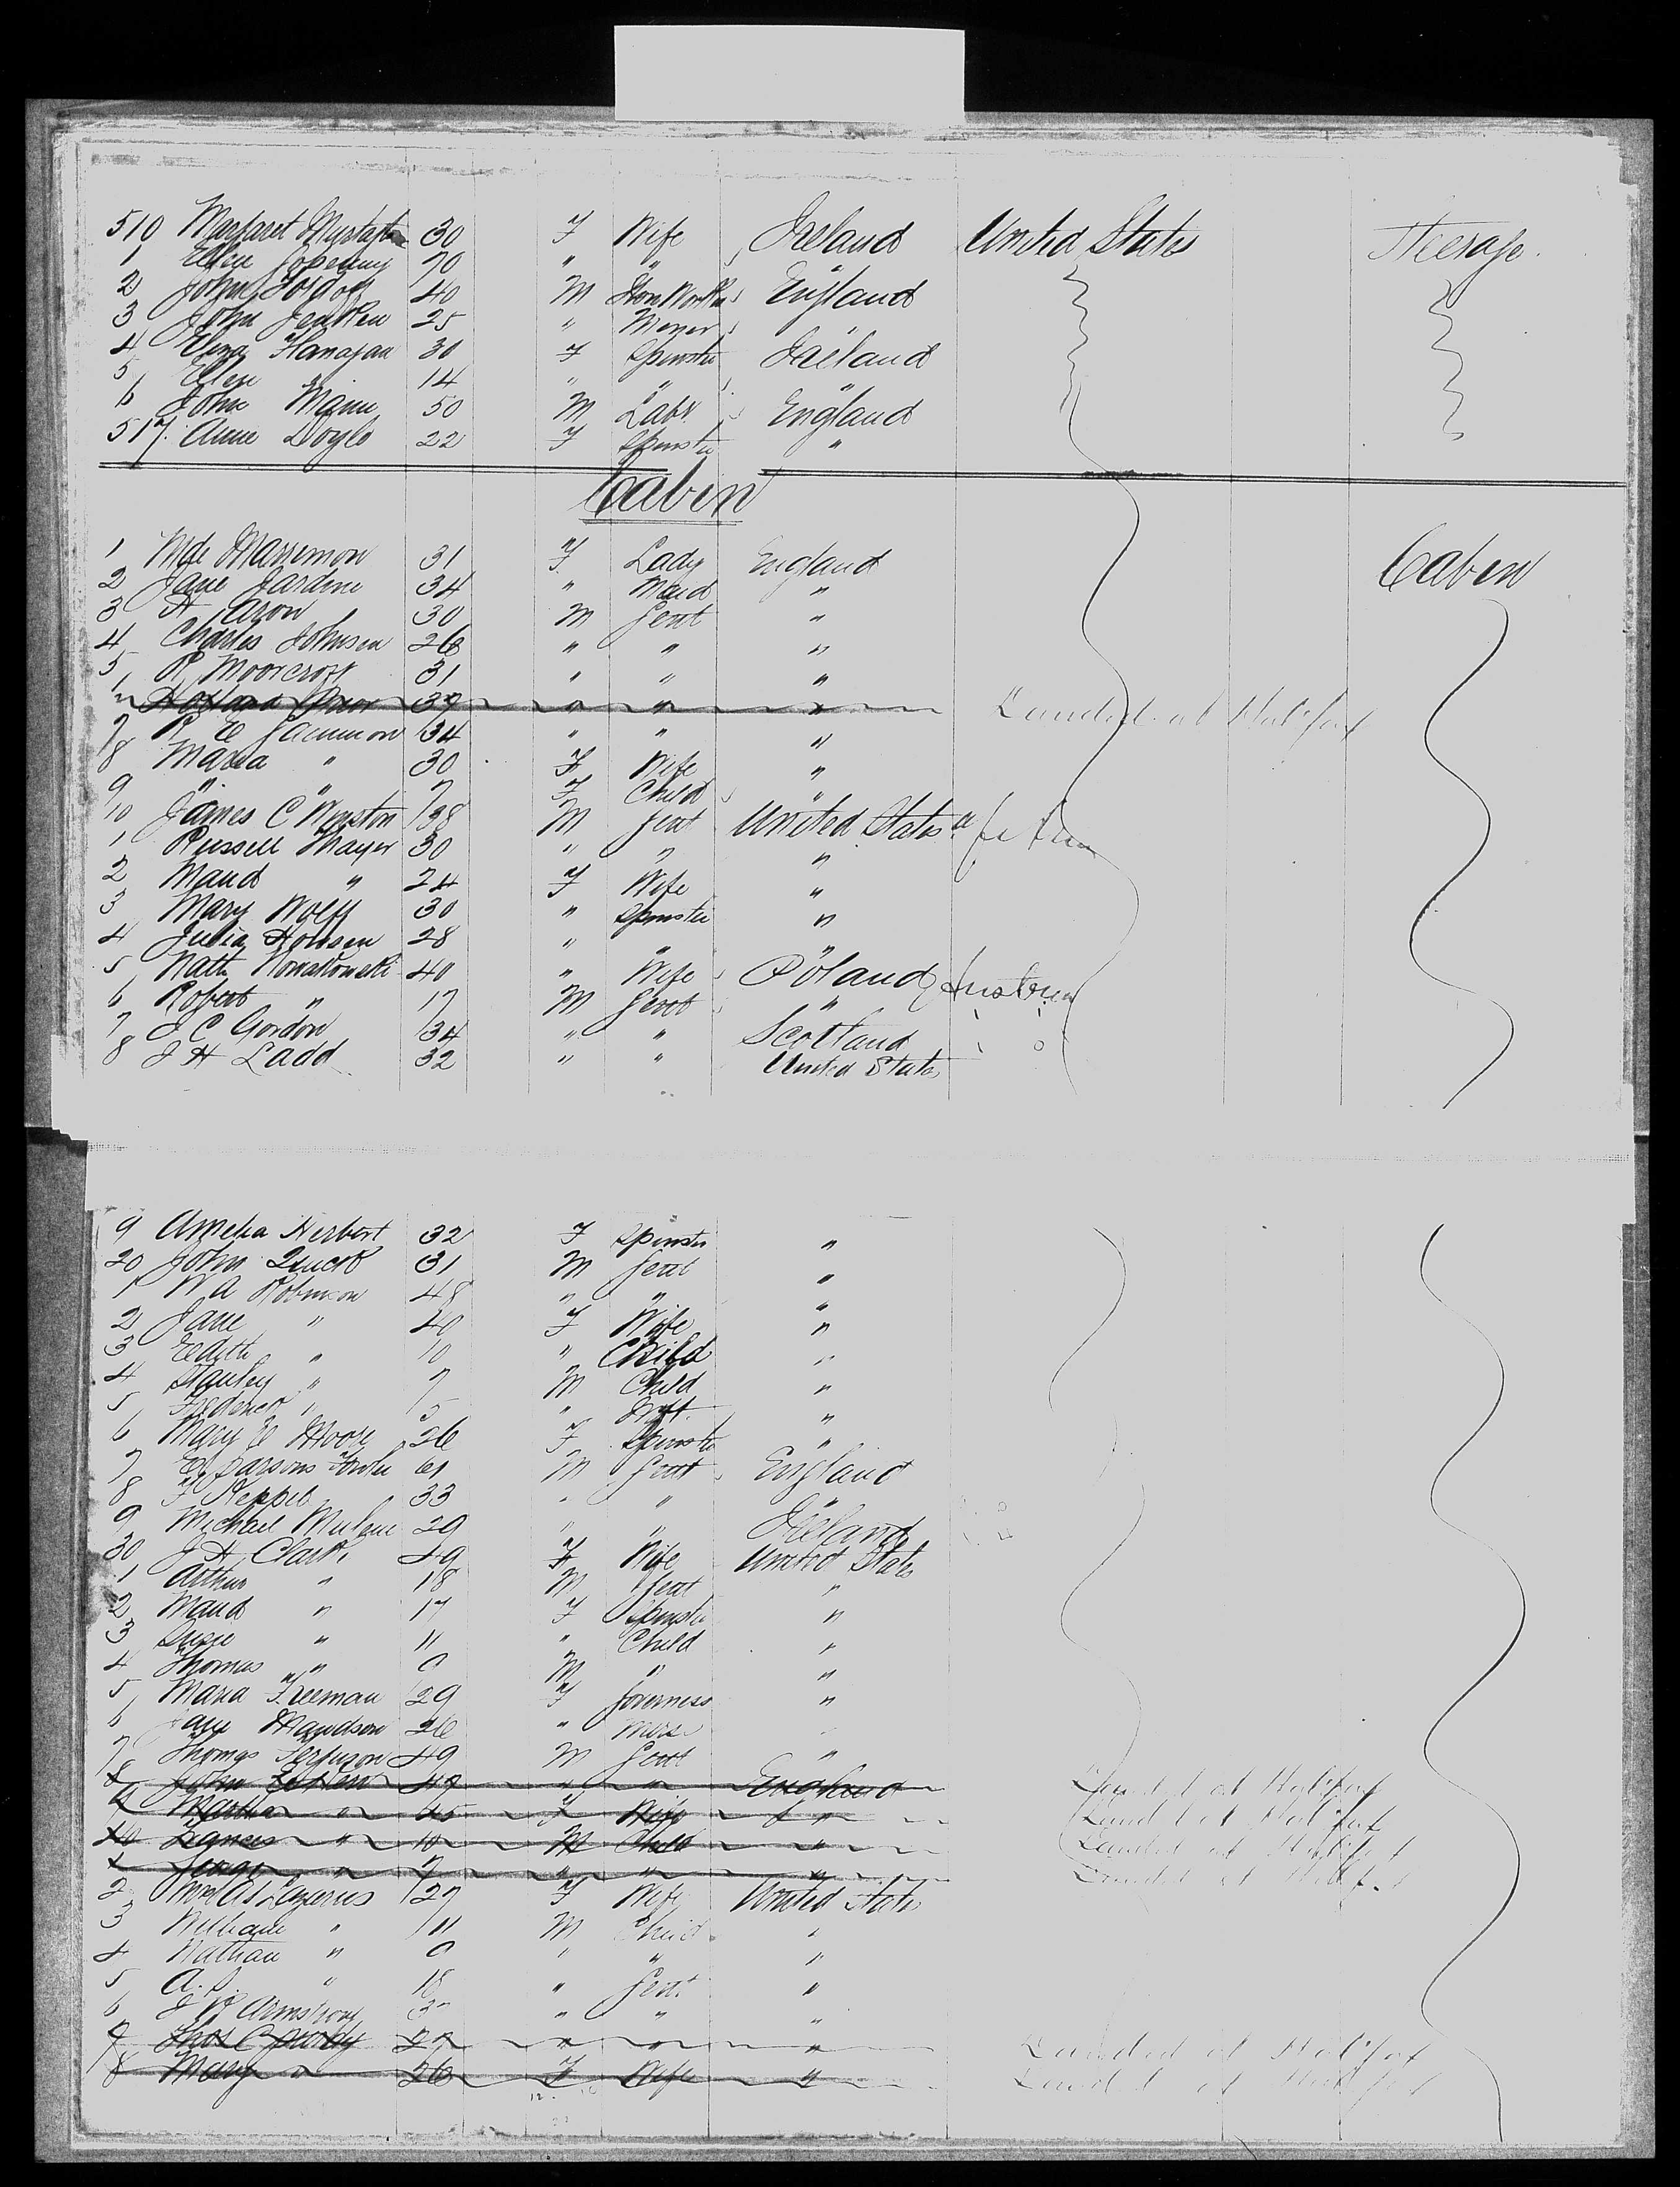 510 Margaret 30 F Wife Ireland United States Steerage
1 Ellen 70 " " "
2 John Gordon 40 M Iron Worker England
3 John Jenken 25 " "
4 Flanagan 30 F Spinster Ireland
5 Ellen " 14 " " "
6 John Mann 50 M Labr England
517 Anne Doyle 22 F Spinster "
Cabin
1 Mde Marremon 31 F Lady England Cabin
2 Jane Jardine 34 " Maid "
3 H Aron 30 M Gent "
4 Charles Johnson 26 " " "
5 R Moorcroft 31 " " "
39 " " " Landed at Halifax
7 R E Gammon 34 " " "
8 Maria " 30 F Wife "
9 " " 7 F Child "
10 James C Winston 38 M Gent United States
1 Russell Thayer 30 " " "
2 Maud " 24 F Wife "
3 Mary Wolff 30 " Spinster "
4 Julia Howsen 28 " " "
5 Nath Nowakowski 40 " Wife Poland Austria
6 Robert " 17 M Gent "
7 J C Gordon 34 " " Scotland
8 J H Ladd 32 " " United States
9 Amelia Herbert 32 F Spinster "
20 John 31 M Gent "
1 W A Robinson 48 " " "
2 Jane " 40 F Wife "
3 Edith " 10 " Child "
4 Stanley " 7 M Child "
5 Frederick " 5 " "
6 Mary E Moore 26 F Spinster "
7 E Parsons 61 M Gent England
8 F Keppel 33 " " "
9 Michael 29 " " Ireland
30 J H Clark 49 F Wife United States
1 Arthur " 18 M Gent "
2 Maud " 17 F Spinster "
3 Susie " 11 " Child "
4 Thomas " 9 M " "
5 Maria Freeman 29 F Governess "
6 Jane 26 " Nurse "
7 Thomas Ferguson 49 M Gent "
8 John 47 " " England Landed at Halifax
9 Martha " 45 F Wife " Landed at Halifax
40 " 10 M Child " Landed at Halifax
1 George " 7 " " " Landed at Halifax
2 Lazarus 27 F Wife United States
3 William " 11 M Child "
4 Nathan " 9 " " "
5 A. S. " 18 " Gent "
6 J Armstrong " " "
7 Thos C Purdy 27 " " " Landed at Halifax
8 Mary " 26 F Wife " Landed at Halifax